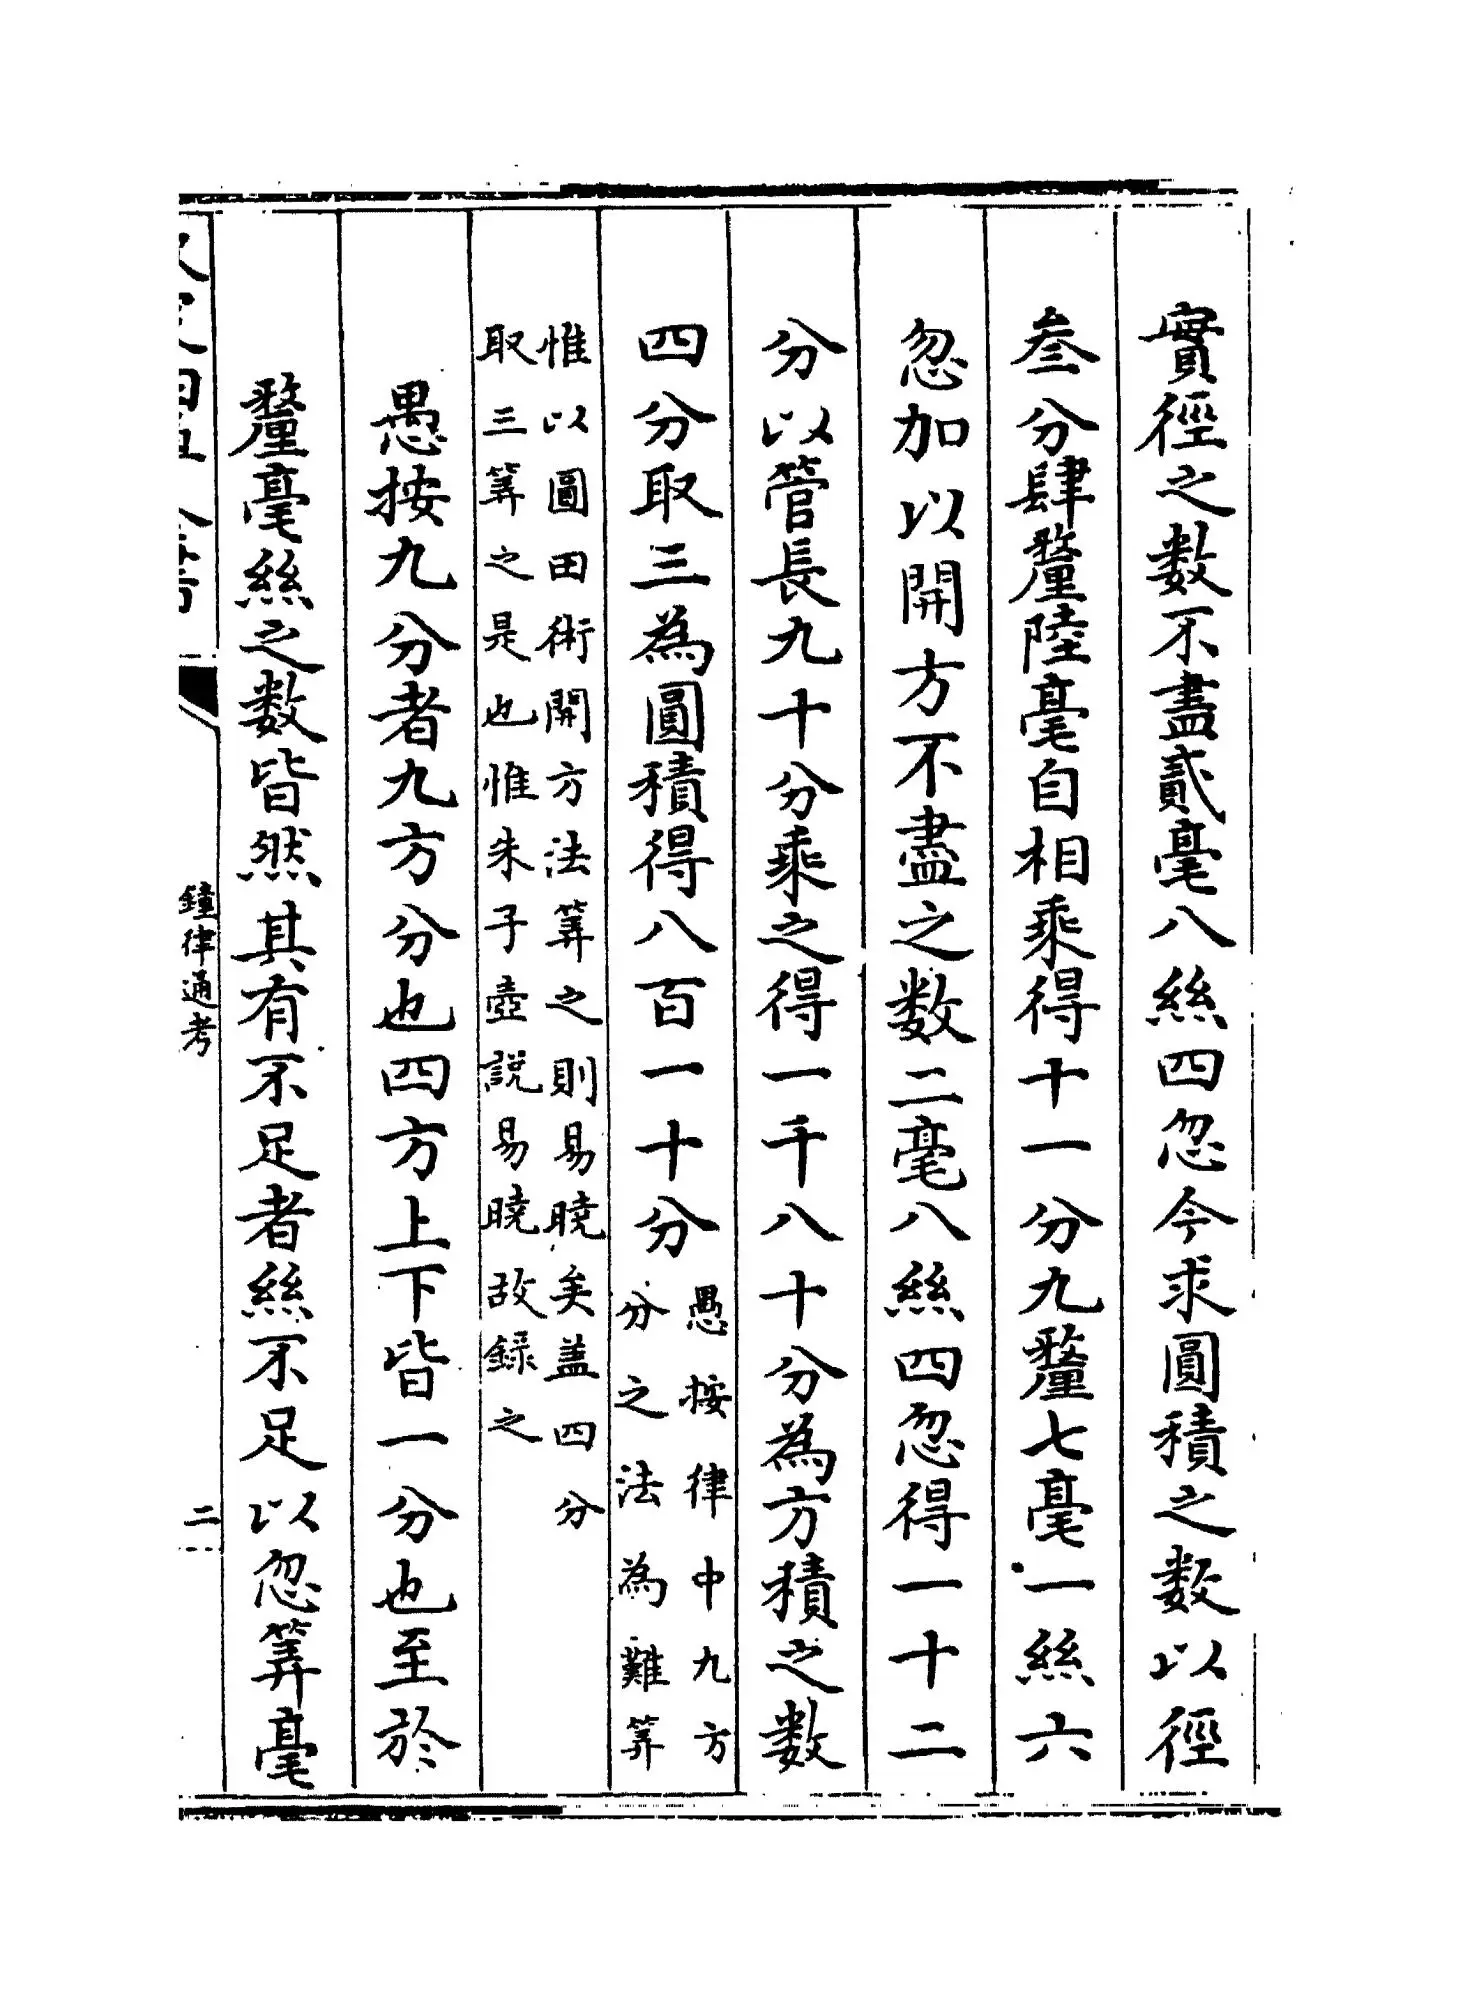 實徑之數不盡貳毫八絲四忽今求圓積之數以徑
叁分肆釐陸毫自相乘得十一分九釐七毫一絲六
忽加以開方不盡之數二毫八絲四忽得一十二
分以管長九十分乘之得一千八十分為方積之數
四分取三為圓積得八百一十分愚按律中九方
分之法為難筭
惟以圓田術開方法筭之則易曉矣盖四分
取三筭之是也惟朱子壺説易曉故録之
愚按九分者九方分也四方上下皆一分也至於
釐毫絲之數皆然其有不足者絲不足以忽筭毫
鐘律通考
二